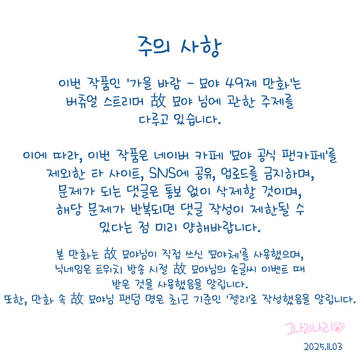 주의 사항
이번 작품인 '가을 바람 - 모야 49제 만화'는
버츄얼 스트리머 故 모야 님에 관한 주제를
다루고 있습니다.
이에 따라, 이번 작품은 네이버 카페 '모야 공식 팬카페'를
제외한 타 사이트, SNS에 공유, 업로드를 금지하며,
문제가 되는 댓글은 통보 없이 삭제할 것이며,
해당 문제가 반복되면 댓글 작성이 제한될 수
있다는 점 미리 양해바랍니다.
본 만화는 故 모야님이 직접 쓰신 '모야체'를 사용했으며,
닉네임은 트위치 방송 시절 故 모야님의 손글씨 이벤트 때
받은 것을 사용했음을 알립니다.
또한, 만화 속 故 모야님 팬덤 명은 최근 기준인 '젤리'로 작성했음을 알립니다.
고나리나리
2025.11.03